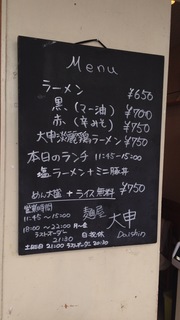 Menu
ラーメン ¥650
黒(マー油) ¥700
赤(辛みそ) ¥750
大申淡麗鶏ラーメン ¥750
本日のランチ 11:45-15:00
塩ラーメン+ミニ豚丼
¥750
めん大盛+ライス無料
営業時間
11:45〜15:00
18:00〜22:00 月〜金
ラストオーダー
21:30
日祝休
土曜日 21:00 ラストオーダー 20:30
麺屋
大申
Daishin